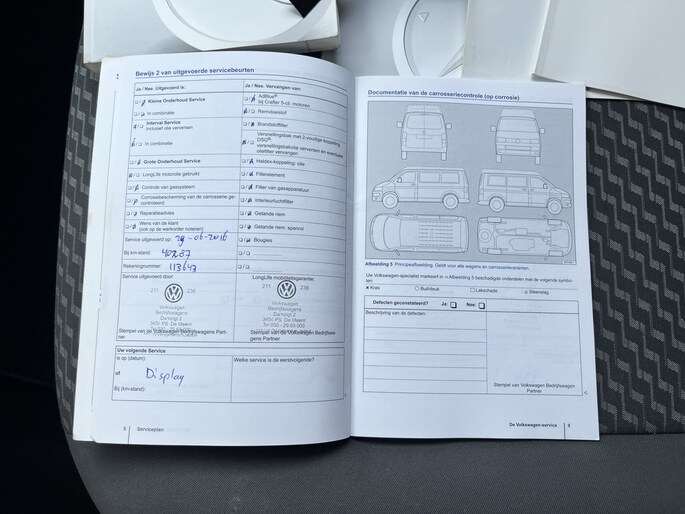 Bewijs 2 van uitgevoerde servicebeurten
Ja / Nee: Uitgevoerd is:
Kleine Onderhoud Service
In combinatie
Interval Service
Inclusief olie verversen
In combinatie
Grote Onderhoud Service
LongLife motorolie gebruikt
Controle van gassysteem
Corrosiebescherming van de carrosserie ge-
controleerd
Reparatieadvies
Wens van de klant
(ook op de werkorder noteren)
Service uitgevoerd op: 29-06-2016
Bij km-stand: 40287
Rekeningnummer: 113647
Service uitgevoerd door:
211 236
Volkswagen
Bedrijfswagens
Damzigt 2
3454 PS De Meern
Stempel van de Volkswagen Bedrijfswagens Part-
ner
Ja / Nee: Vervangen van:
AdBlue®
bij Crafter 5-cil. motoren
Remvloeistof
Brandstoffilter
Versnellingsbak met 2-voudige koppeling
DSG®:
versnellingsbakolie verversen en eventueel
oliefilter vervangen
Haldex-koppeling: olie
Filterelement
Filter van gasapparatuur
Interieurluchtfilter
Getande riem
Getande riem: spanrol
Bougies
LongLife mobiliteitsgarantie:
211 236
Volkswagen
Bedrijfswagens
Damzigt 2
3454 PS De Meern
Stempel van de Volkswagen Bedrijfswa-
gens Partner
Uw volgende Service
is op (datum):
of
Display
Bij (km-stand):
Welke service is de eerstvolgende?
8 Serviceplan
Documentatie van de carrosseriecontrole (op corrosie)
Afbeelding 5 Principeafbeelding: Geldt voor alle wagens en carrosserievarianten.
Uw Volkswagen-specialist markeert in Afbeelding 5 beschadigde onderdelen met de volgende symbo-
len:
Kras
Buil/deuk
Lakschade
Steenslag
Defecten geconstateerd? Ja: Nee:
Beschrijving van de defecten:
Stempel van Volkswagen Bedrijfswagen
Partner
De Volkswagen-service 9